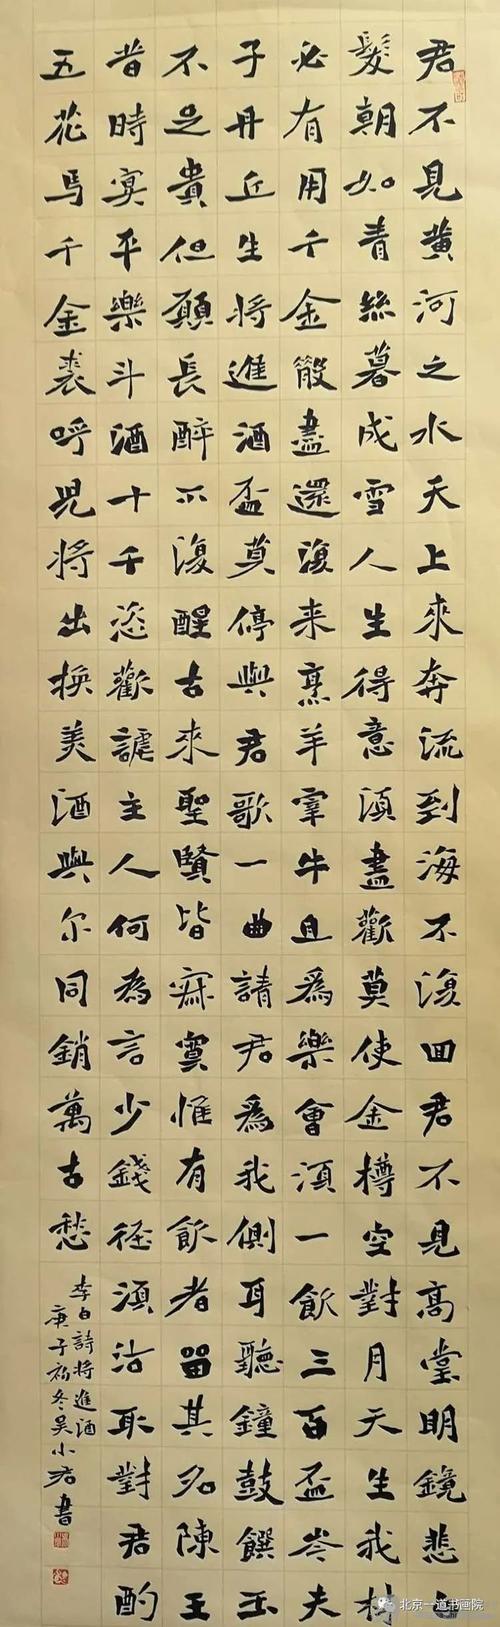 君不見黃河之水天上來奔流到海不復回君不見高堂明鏡悲白
髮朝如青絲暮成雪人生得意須盡歡莫使金樽空對月天生我材
必有用千金散盡還復来烹羊宰牛且爲樂會須一飲三百盃岑夫
子丹丘生將進酒盃莫停與君歌一曲請君爲我側耳聽鐘鼓饌玉
不足貴但願長醉不復醒古來聖賢皆寂寞惟有飲者留其名陳王
昔時宴平樂斗酒十千恣歡謔主人何為言少錢徑須沽取對君酌
五花馬千金裘呼兒將出換美酒與尔同銷萬古愁
李白詩將進酒
庚子初冬吴小君書
北京一道书画院